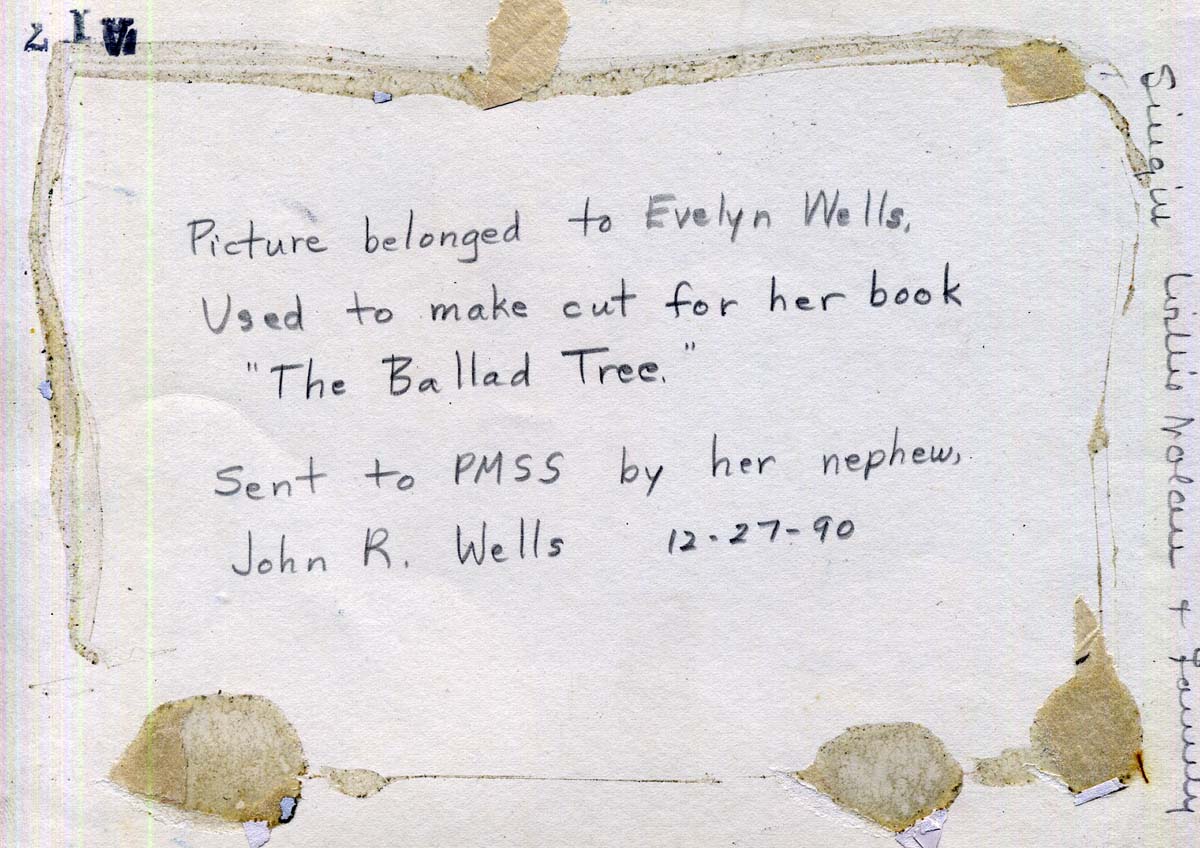 Picture belonged to Evelyn Wells,
Used to make cut for her book
"The Ballad Tree."
Sent to PMSS by her nephew,
John R. Wells 12-27-90
Singin Willie Nolan + Family